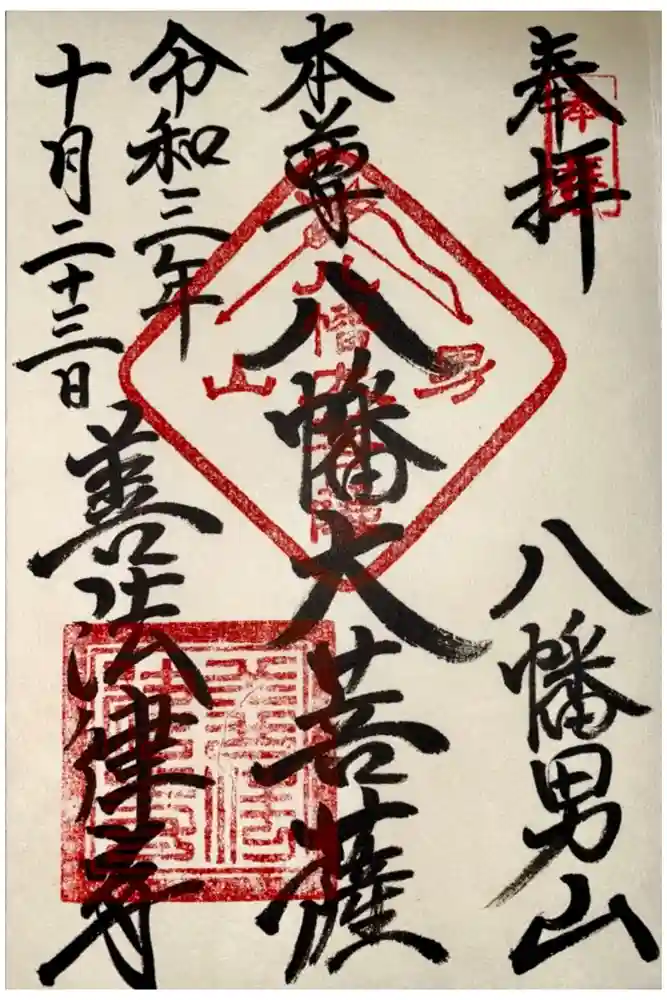 奉拝
八幡男山
本尊 八幡大菩薩
令和三年
十月二十三日
善法律寺
奉拝
男山
八幡大菩薩